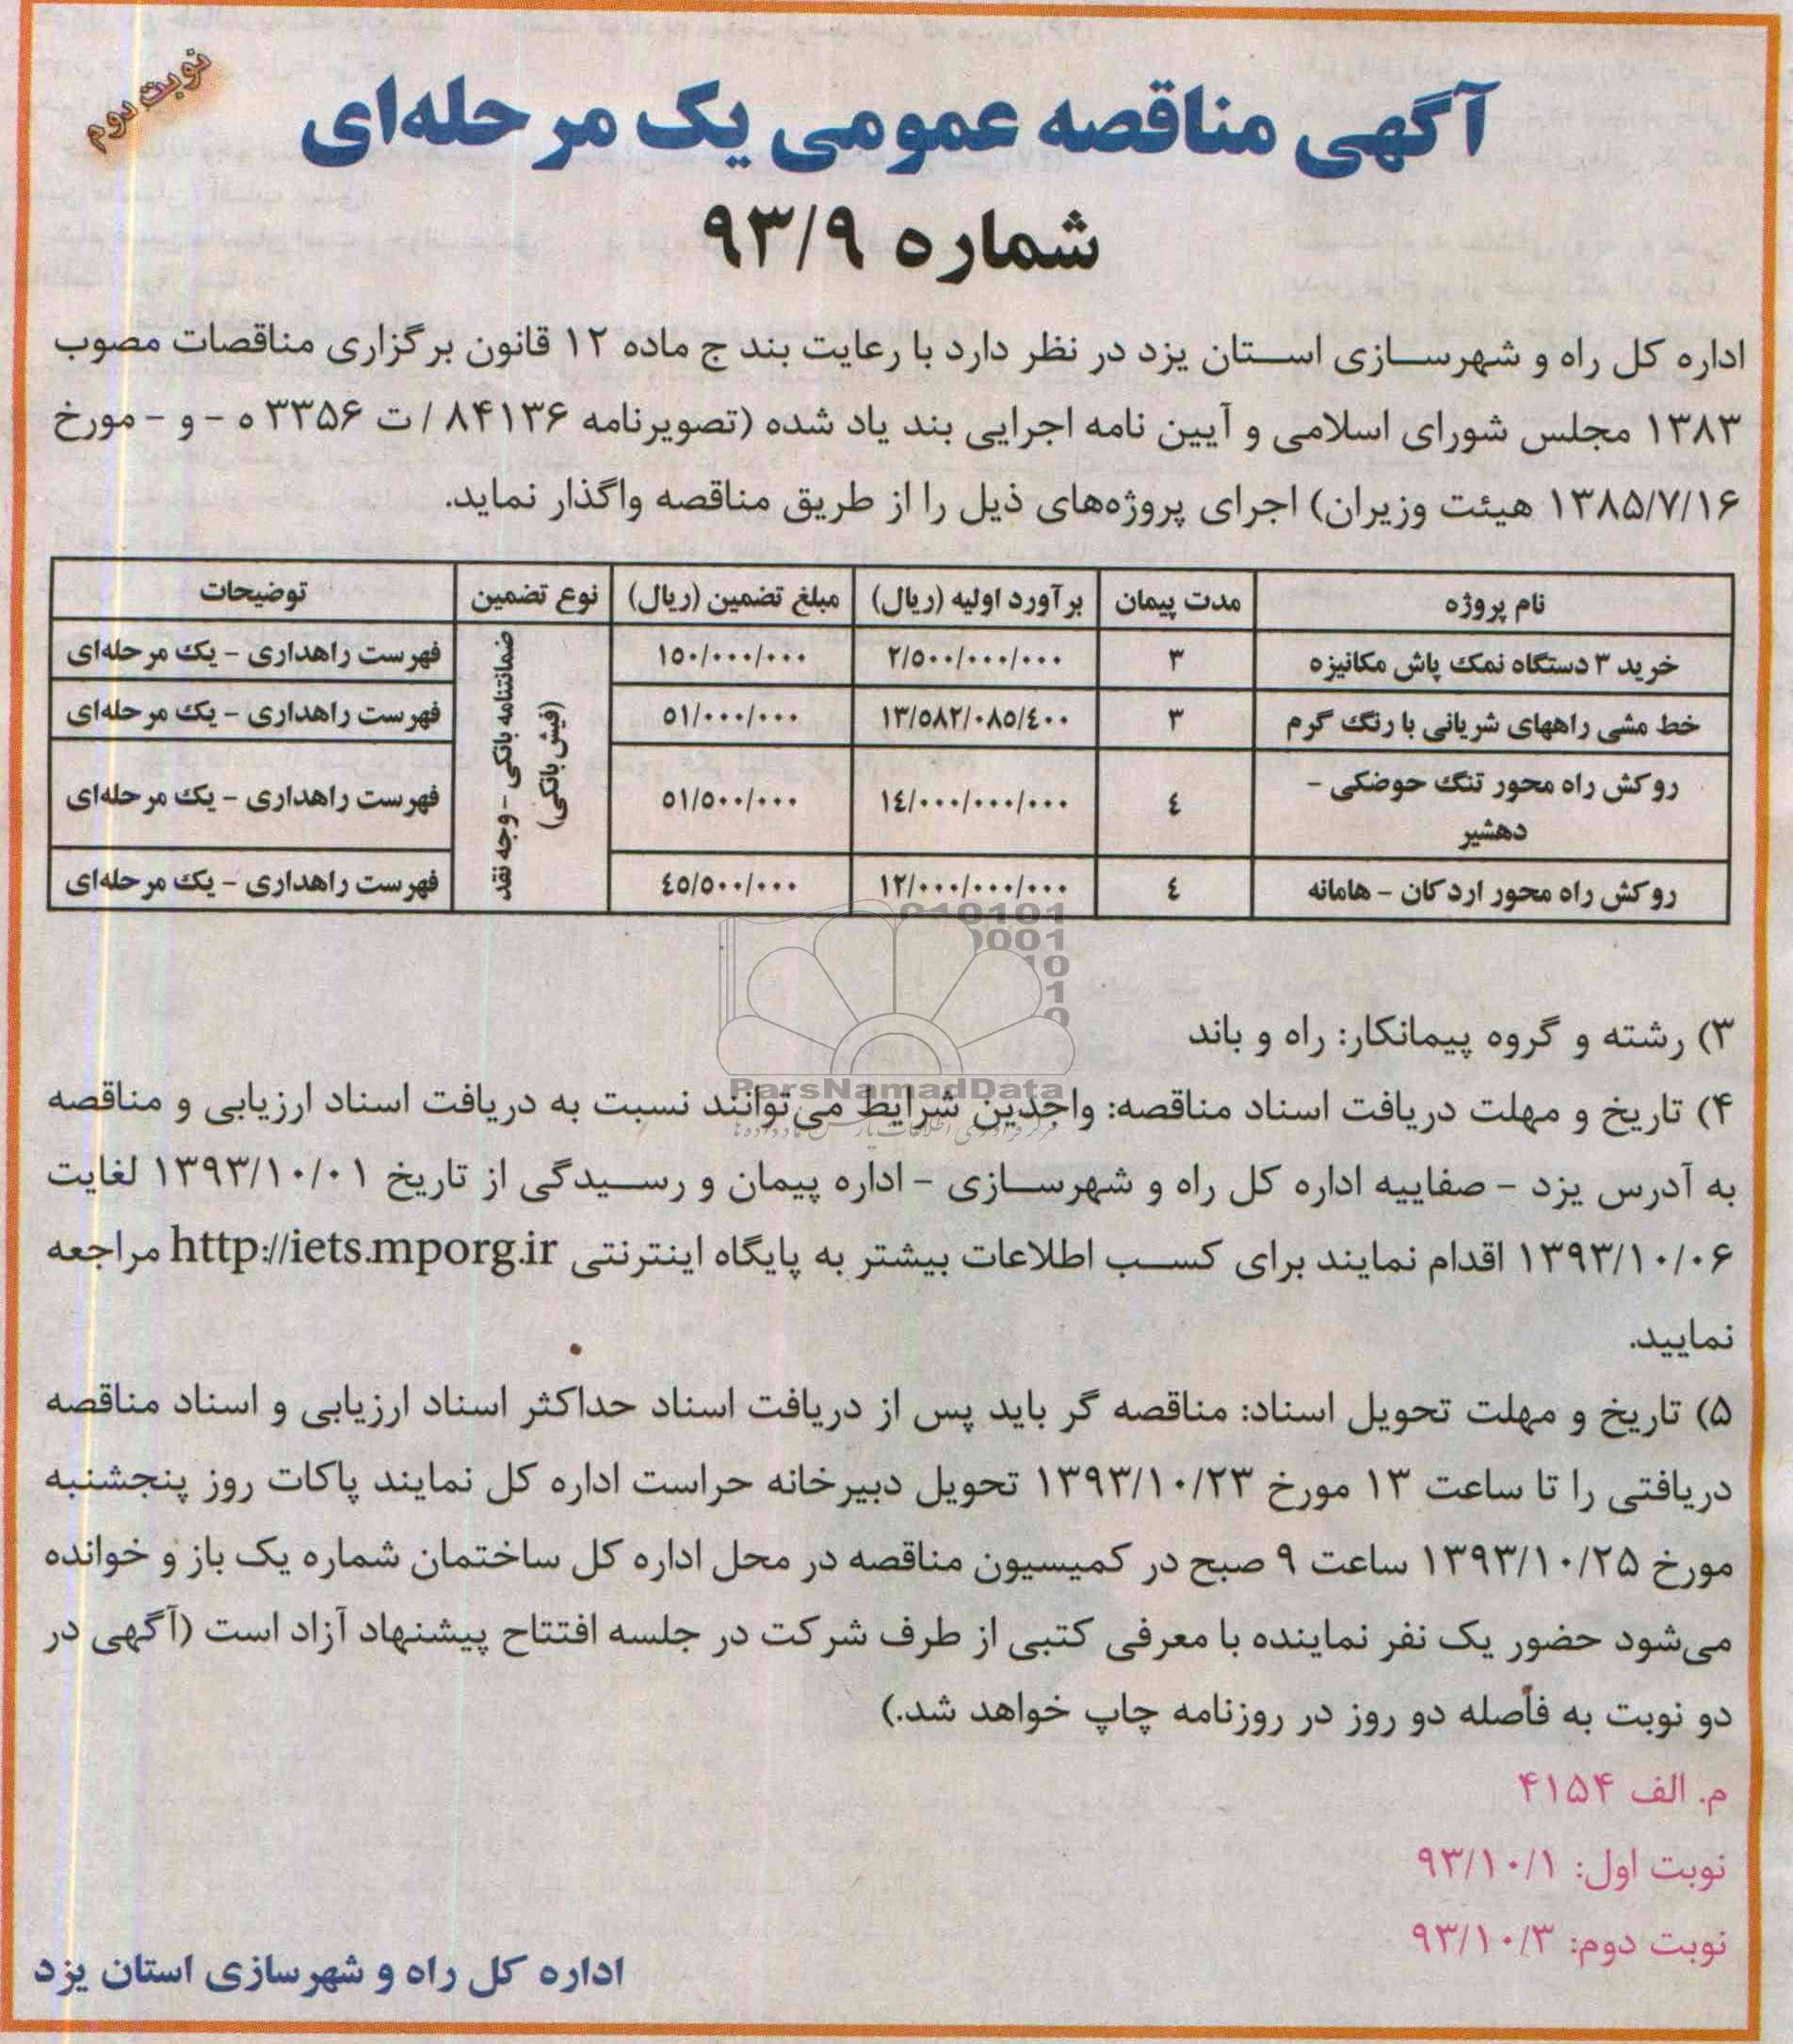 نوبت دوم
آگهی مناقصه عمومی یک مرحله‌ای
شماره ۹۳/۹
اداره کل راه و شهرسازی استان یزد در نظر دارد با رعایت بند ج ماده ۱۲ قانون برگزاری مناقصات مصوب
۱۳۸۳ مجلس شورای اسلامی و آیین نامه اجرایی بند یاد شده (تصویرنامه ۸۴۱۳۶ / ت ۳۳۵۶ ه - و - مورخ
۱۳۸۵/۷/۱۶ هیئت وزیران) اجرای پروژه‌های ذیل را از طریق مناقصه واگذار نماید.
نام پروژه مدت پیمان برآورد اولیه (ریال) مبلغ تضمین (ریال) نوع تضمین توضیحات
خرید ۳ دستگاه نمک پاش مکانیزه ۳ ۲/۵۰۰/۰۰۰/۰۰۰ ۱۵۰/۰۰۰/۰۰۰ فهرست راهداری - یک مرحله‌ای
خط مشی راههای شریانی با رنگ گرم ۳ ۱۳/۵۸۲/۰۸۵/٤۰۰ ۵۱/۰۰۰/۰۰۰ فهرست راهداری - یک مرحله‌ای
روکش راه محور تنگ حوضکی -
دهشیر ٤ ۱٤/۰۰۰/۰۰۰/۰۰۰ ۵۱/۵۰۰/۰۰۰ فهرست راهداری - یک مرحله‌ای
روکش راه محور اردکان - هامانه ٤ ۱۲/۰۰۰/۰۰۰/۰۰۰ ٤۵/۵۰۰/۰۰۰ فهرست راهداری - یک مرحله‌ای
ضمانتنامه بانکی - وجه نقد
(فیش بانکی)
۳) رشته و گروه پیمانکار: راه و باند
ParsNamadData
۴) تاریخ و مهلت دریافت اسناد مناقصه: واجدین شرایط می‌توانند نسبت به دریافت اسناد ارزیابی و مناقصه
به آدرس یزد - صفاییه اداره کل راه و شهرسازی - اداره پیمان و رسیدگی از تاریخ ۱۳۹۳/۱۰/۰۱ لغایت
۱۳۹۳/۱۰/۰۶ اقدام نمایند برای کسب اطلاعات بیشتر به پایگاه اینترنتی http://iets.mporg.ir مراجعه
نمایید.
۵) تاریخ و مهلت تحویل اسناد: مناقصه گر باید پس از دریافت اسناد حداکثر اسناد ارزیابی و اسناد مناقصه
دریافتی را تا ساعت ۱۳ مورخ ۱۳۹۳/۱۰/۲۳ تحویل دبیرخانه حراست اداره کل نمایند پاکات روز پنجشنبه
مورخ ۱۳۹۳/۱۰/۲۵ ساعت ۹ صبح در کمیسیون مناقصه در محل اداره کل ساختمان شماره یک باز و خوانده
می‌شود حضور یک نفر نماینده با معرفی کتبی از طرف شرکت در جلسه افتتاح پیشنهاد آزاد است (آگهی در
دو نوبت به فاصله دو روز در روزنامه چاپ خواهد شد.)
م. الف ۴۱۵۴
نوبت اول: ۹۳/۱۰/۱
نوبت دوم: ۹۳/۱۰/۳
اداره کل راه و شهرسازی استان یزد